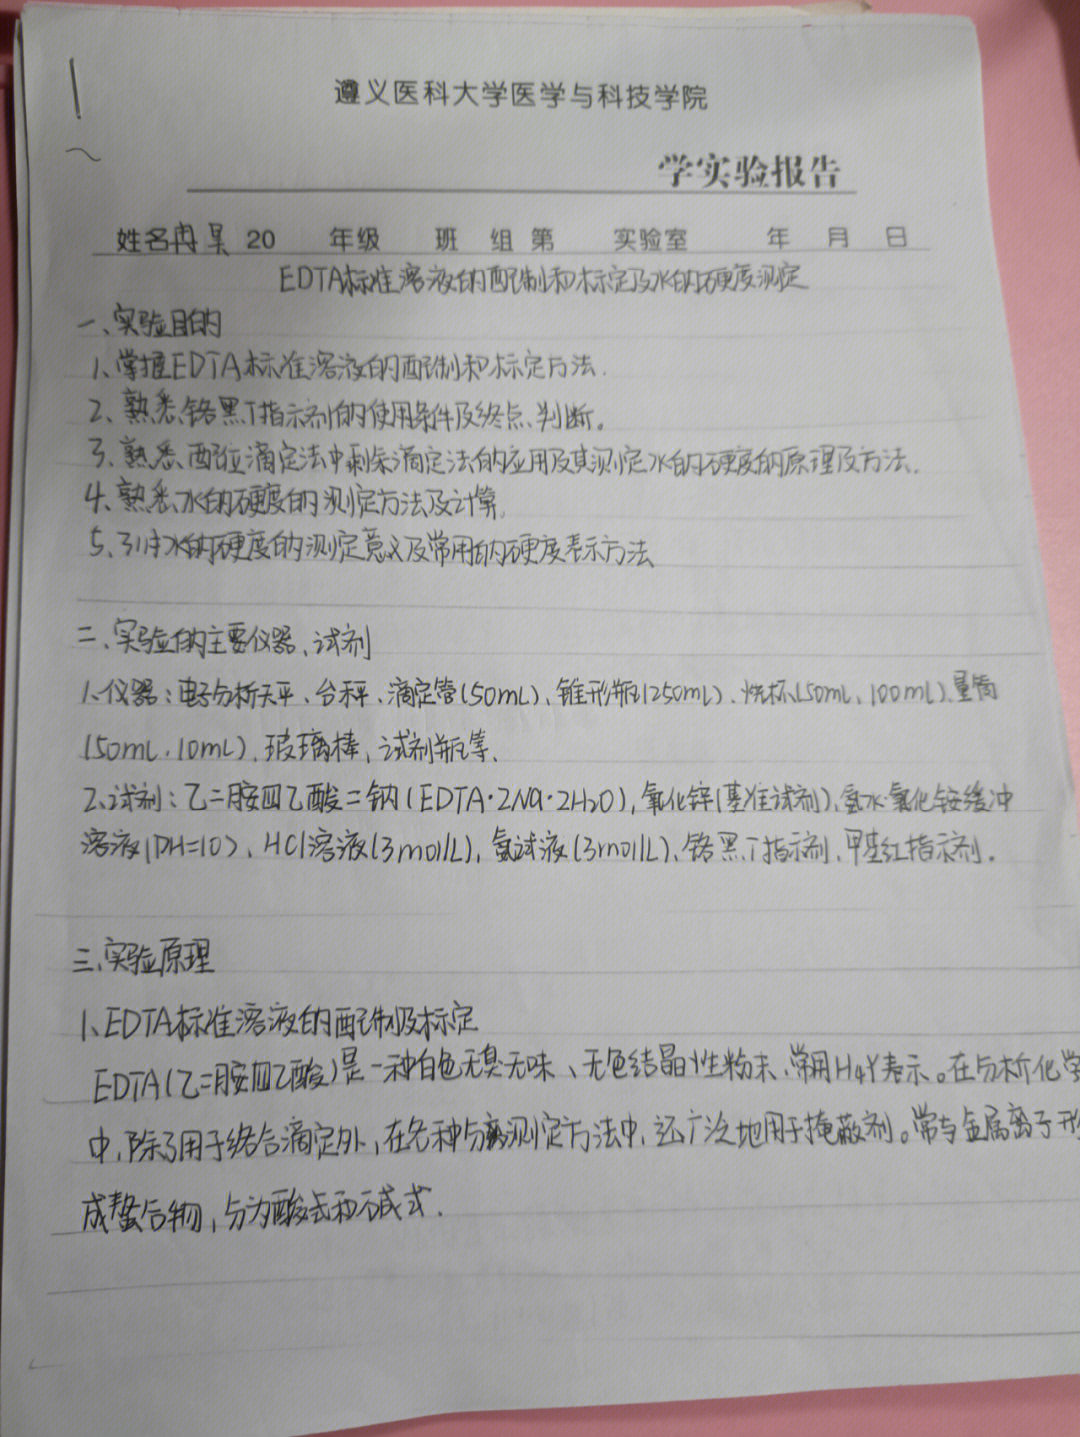 遵义医科大学医学与科技学院
学实验报告
姓名冉昊 20 年级 班 组 第 实验室 年 月 日
EDTA标准溶液的配制和标定及水的硬度测定
一、实验目的
1、掌握EDTA标准溶液的配制和标定方法.
2、熟悉铬黑T指示剂的使用条件及终点判断。
3、熟悉配位滴定法中剩余滴定法的应用及其测定水的硬度的原理及方法.
4、熟悉水的硬度的测定方法及计算.
5、水的硬度的测定意义及常用的硬度表示方法
二、实验的主要仪器、试剂
1、仪器：电子分析天平、台秤、滴定管(50mL)、锥形瓶(250mL)、烧杯(50mL、100mL)、量筒
(50mL、10mL)、玻璃棒、试剂瓶等.
2、试剂：乙二胺四乙酸二钠(EDTA·2Na·2H₂O)，氧化锌(基准试剂)、氨水·氯化铵缓冲
溶液(PH=10)、HCl溶液(3mol/L)，氨试液(3mol/L)、铬黑T指示剂、甲基红指示剂.
三、实验原理
1、EDTA标准溶液的配制及标定
EDTA(乙二胺四乙酸)是一种白色无臭无味、无色结晶性粉末，常用H₄Y表示。在分析化学
中，除了用于络合滴定外，在各种分离测定方法中，还广泛地用于掩蔽剂。常与金属离子形
成螯合物，分为酸式和碱式.